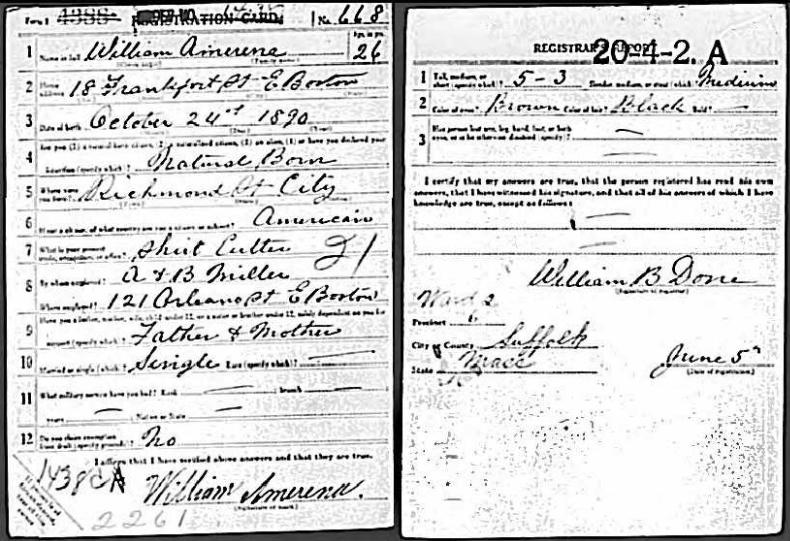 Form 1 REGISTRATION CARD No. 668
Age, in yrs.
1 Name in full William Amerena 26
2 Home address 18 Frankfort St E Boston
3 Date of birth October 24st 1890
4 Are you (1) a natural born citizen, (2) a naturalized citizen, (3) an alien, (4) or have you declared your intention (specify which)? Natural Born
5 Where were you born? Richmond St City
6 If not a citizen, of what country are you a citizen or subject? American
7 What is your present trade, occupation, or office? Shirt Cutter 21
8 By whom employed? A & B Miller
Where employed? 121 Orleans St E Boston
9 Have you a father, mother, wife, child under 12, or a sister or brother under 12, solely dependent on you for support (specify which)? Father & Mother
10 Married or single (which)? Single Race (specify which)? —
11 What military service have you had? Rank — branch —
years — Nation or State —
12 Do you claim exemption from draft (specify grounds)? No
I affirm that I have verified above answers and that they are true.
1438 A
William Amerena.
(Signature or mark)
2261
REGISTRAR'S REPORT
20-1-2. A
1 Tall, medium, or short (specify which)? 5-3 Slender, medium, or stout (which)? Medium
2 Color of eyes? Brown Color of hair? Black Bald? —
3 Has person lost arm, leg, hand, foot, or both eyes, or is he otherwise disabled (specify)? —
I certify that my answers are true, that the person registered has read his own
answers, that I have witnessed his signature, and that all of his answers of which I have
knowledge are true, except as follows:
William B Done
(Signature of registrar)
Ward 2
Precinct 6
City or County Suffolk
State Mass
June 5
(Date of registration)